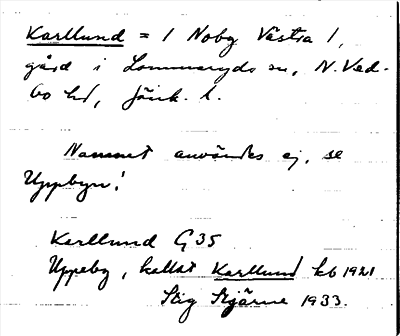 Karllund = 1 Noby Västra 1,
gård i Lommaryds sn, N. Ved-
bo hd, Jönk. l.
Namnet användes ej, se
Uppbyn!
Karllund G35
Uppeby, kallat Karllund kb 1921
Stig Stjärne 1933.